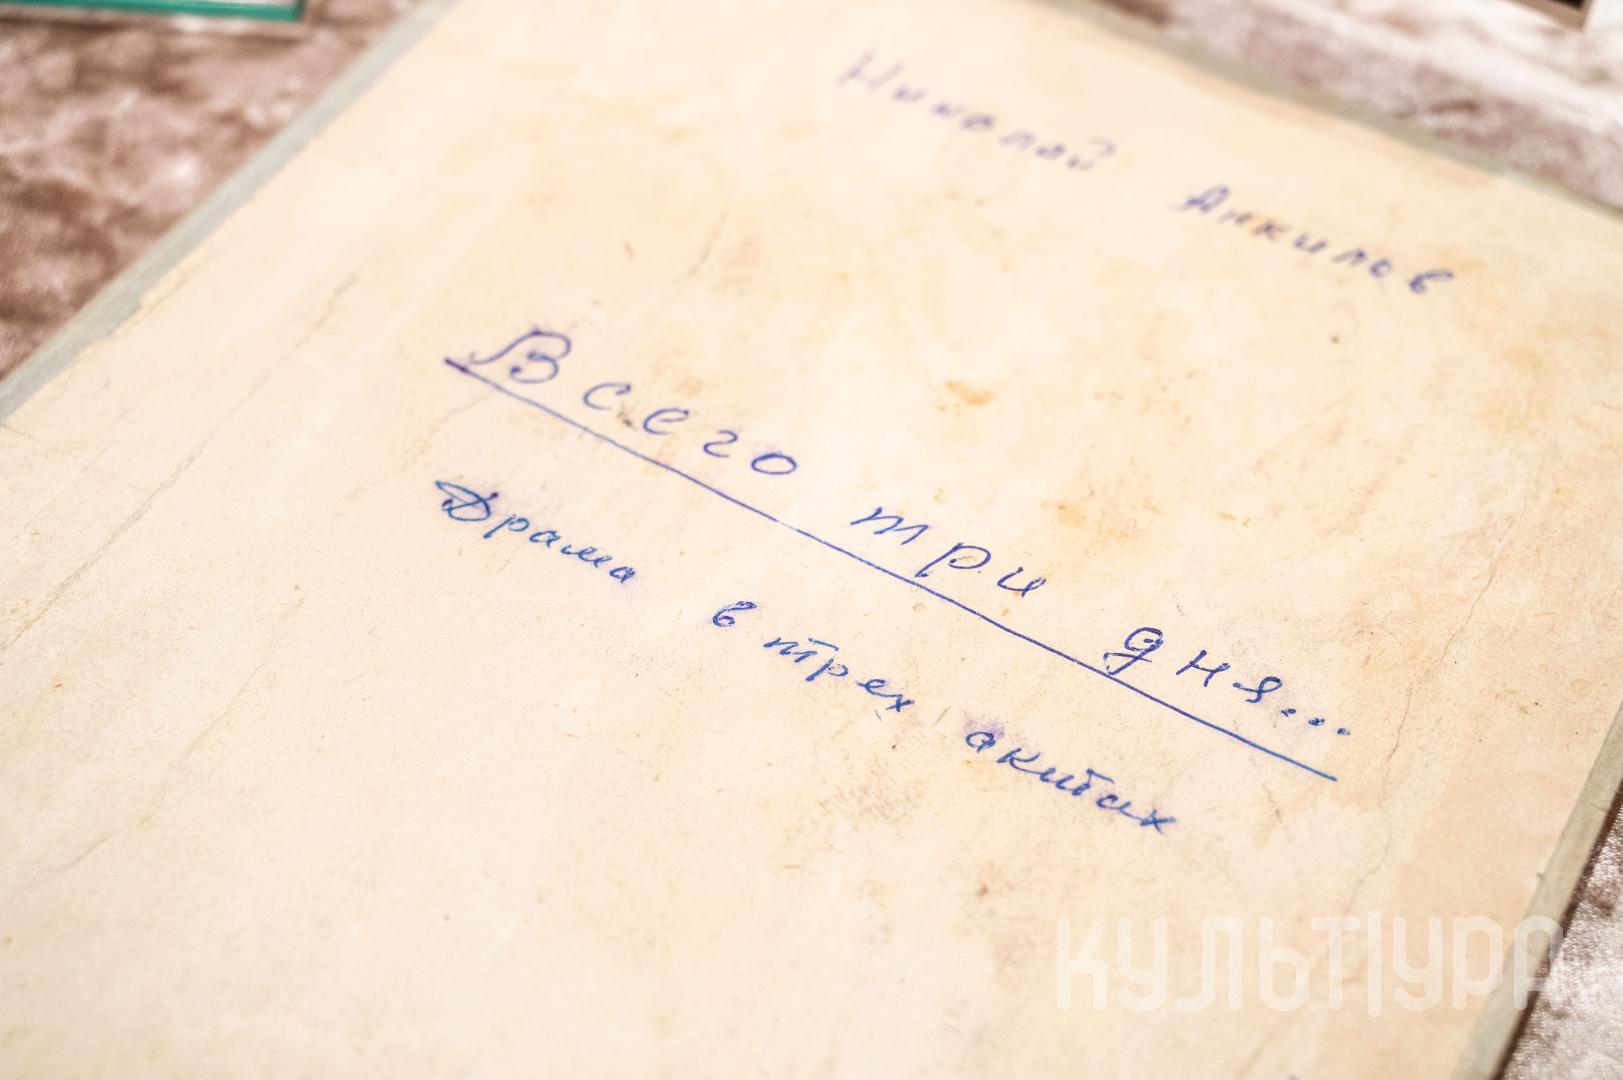 Николай Анкилов
Всего три дня...
Драма в трех актах
КУЛЬТУРА